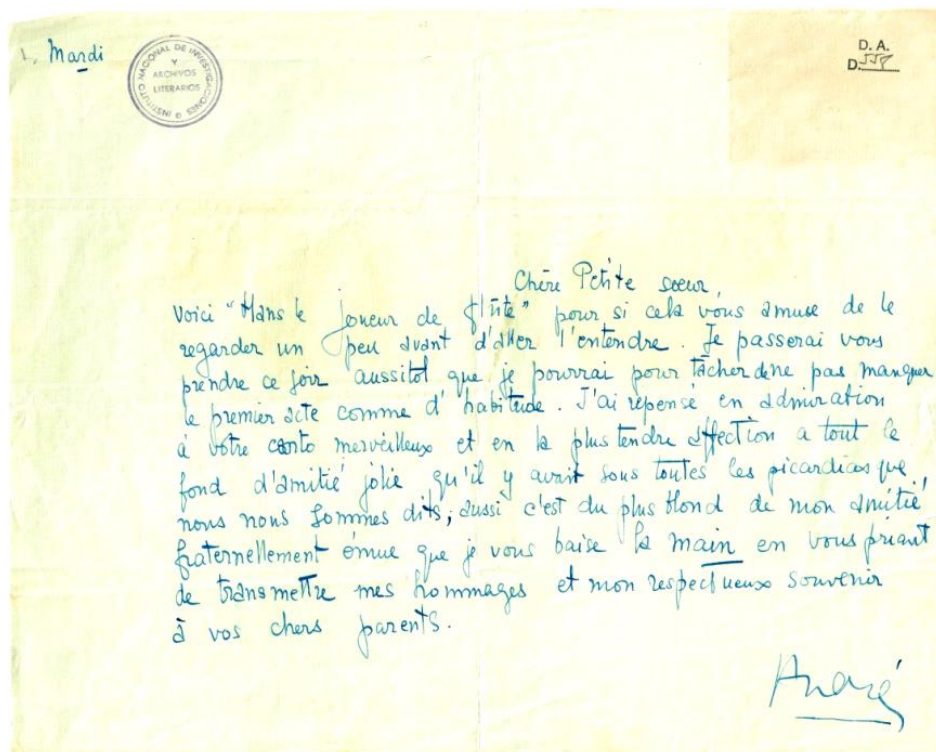 Mardi
INSTITUTO NACIONAL DE INVESTIGACIONES
Y
ARCHIVOS
LITERARIOS
D. A.
D.558
Chère Petite soeur,
Voici "Hans le joueur de flûte" pour si cela vous amuse de le
regarder un peu avant d'aller l'entendre. Je passerai vous
prendre ce soir aussitot que je pourrai pour tâcher de ne pas manquer
le premier acte comme d'habitude. J'ai repensé en admiration
à votre canto merveilleux et en la plus tendre affection a tout le
fond d'amitié jolie qu'il y avait sous toutes les picardias que
nous nous sommes dits; aussi c'est du plus blond de mon amitié
fraternellement émue que je vous baise la main en vous priant
de transmettre mes hommages et mon respectueux souvenir
à vos chers parents.
André